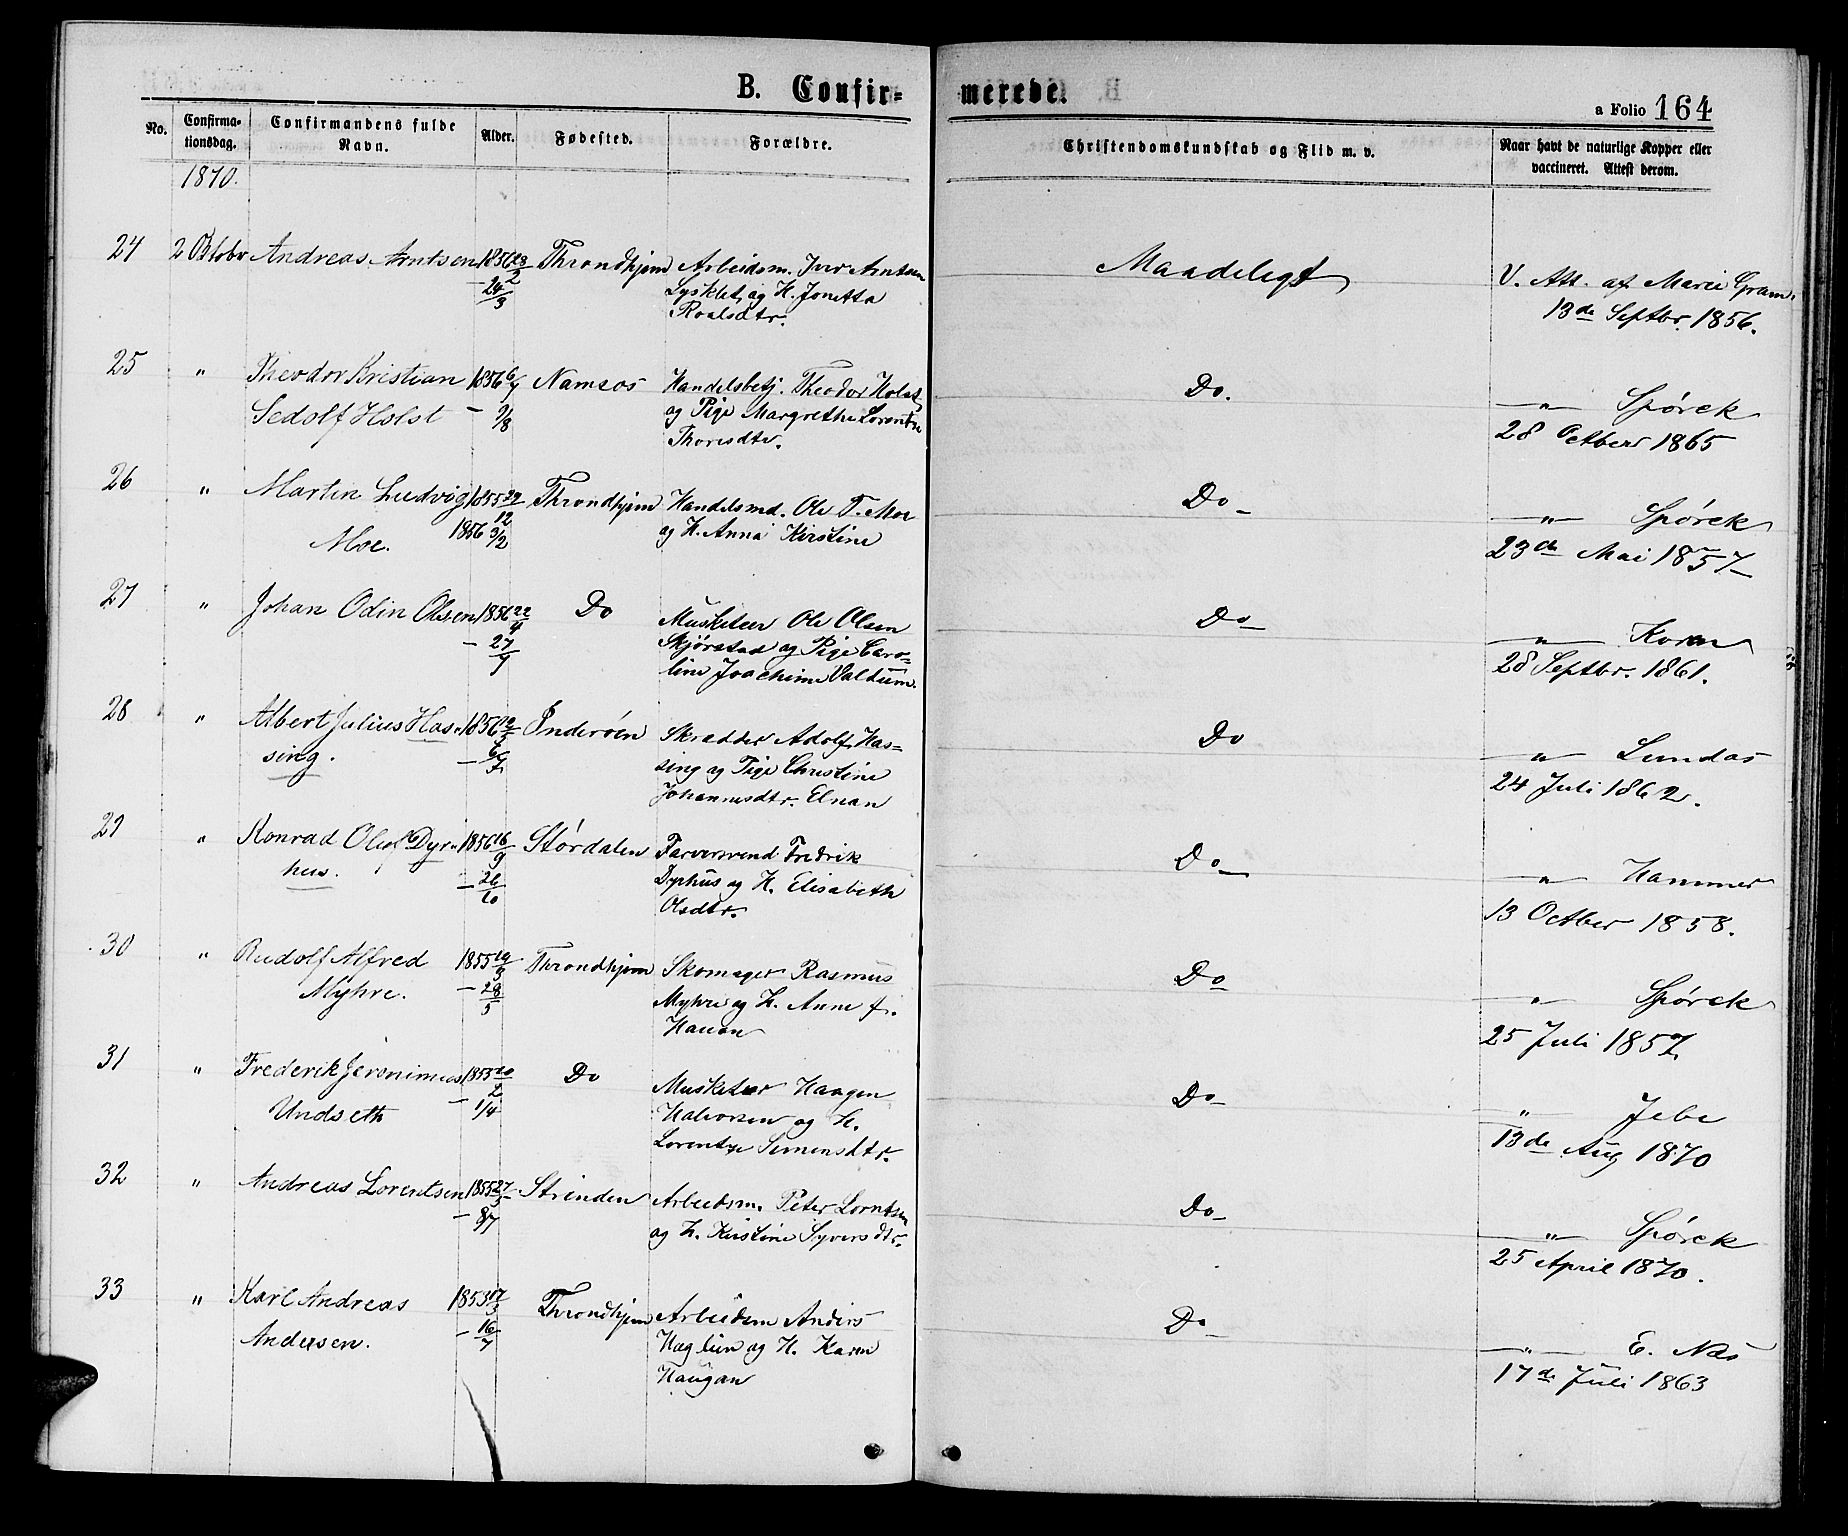 B. Confir-
merede.
a Folio 164
No.
Confirma-
tionsdag.
Confirmandens fulde
Navn.
Alder.
Fødested.
Forældre.
Christendomskundskab og Flid m. v.
Naar havt de naturlige Kopper eller
vaccineret. Attest derom.
1870.
24 2 Octobr Andreas Arntsen 1856 23/2 Throndhjem Arbeidsm. Iver Arntsen Maadeligt V. Att. af Marie Gram
- 24/3 Lysklet og H. Jonetta 13de Septbr. 1856.
Roalsdtr.
25 " Theodor Kristian 1856 6/4 Namsos Handelsbetj. Theodor Holst Do. —"— Spörck
Sedolf Holst - og Pige Margrethe Lorentse 28 Octber 1865
Thoresdtr.
26 " Martin Ludvig 1855 29/12 Throndhjem Handelsmd. Ole T. Moe Do - —"— Spörck
Moe. 1856 3/2 og H. Anna Kirstine 23de Mai 1857
27 " Johan Odin Olsen 1856 22/4 Do Musketeer Ole Olsen Do - —"— Koren
- 27/7 Skjørstad og Pige Caro-
line Joachime Valdum. 28 Septbr. 1861.
28 " Albert Julius Has- 1856 Inderöen Skrædder Adolf Has- Do " Lundas
sing. - sing og Pige Christine 24 Juli 1862.
Johannesdtr. Elnan
29 " Konrad Oluf Dyr- 1856 16/9 Stördalen Farversvend Fredrik Do - —"— Hammer
hus. - 26/10 Dyrhus og H. Elisabeth 13 Octber 1858.
Olsdtr.
30 " Rudolf Alfred 1855 19/3 Throndhjem Skomager Rasmus Do —"— Spörck
Myhre. - 28/5 Myhre og H. Anne f. 25 Juli 1857
Hauan
31 " Frederik Jeronimus 1855 20/2 Do Musketeer Haagen Do - " Jebe
Undseth - 1/4 Halvorsen og H. 13de Aug 1870
Lorentze Simensdtr.
32 " Andreas Lorentsen 1855 27/5 Strinden Arbeidsm. Peter Lorntsen Do - —"— Spörck
- 8/7 og H. Kirstine Syversdtr. 25 April 1870.
33 " Karl Andreas 1855 17/3 Throndhjem Arbeidsm Anders Do - —"— E. Næs
Andersen. - 16/7 Haglien og H. Karen 17de Juli 1863
Haugan